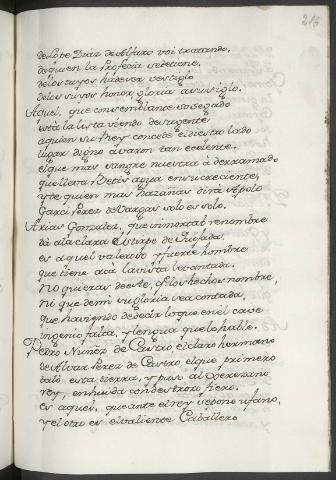 216
de Lope Diaz de Alfaro voi tratando,
de quien la Profecia se detiene,
de los suyos su
de los vivos honor, gloria a su siglo.
Aquel, que con semblante sosegado
está la lista viendo de su gente
a quien su Rey concede el diestro lado
lugar digno á varon tan ecelente.
el que mas sangre muestra á derramado
que lleva Betis agua en su creciente,
y de quien mas hazañas dirà Apolo
Garci Perez de Vargas solo es solo.
Arias Gonzalez, que inmortal renombre
dà á la clara Estirpe de Quijada
es aquel valeroso y fuerte hombre
que tiene acà la vista levantada.
no quieras de este, de los hechos nombre,
ni que de mi su gloria sea contada,
que haviendo de decir lo que en el cave
ingenio falta, y lengua que lo hable.
Pedro Nuñez de Castro el claro hermano
de Alvar Perez de Castro el que primero
taló esta tierra, y puso al Xerezano
rey, en huida con destrozo fiero.
es aquel, que ante el rey se pone ufano,
y el otro es el valiente Caballero